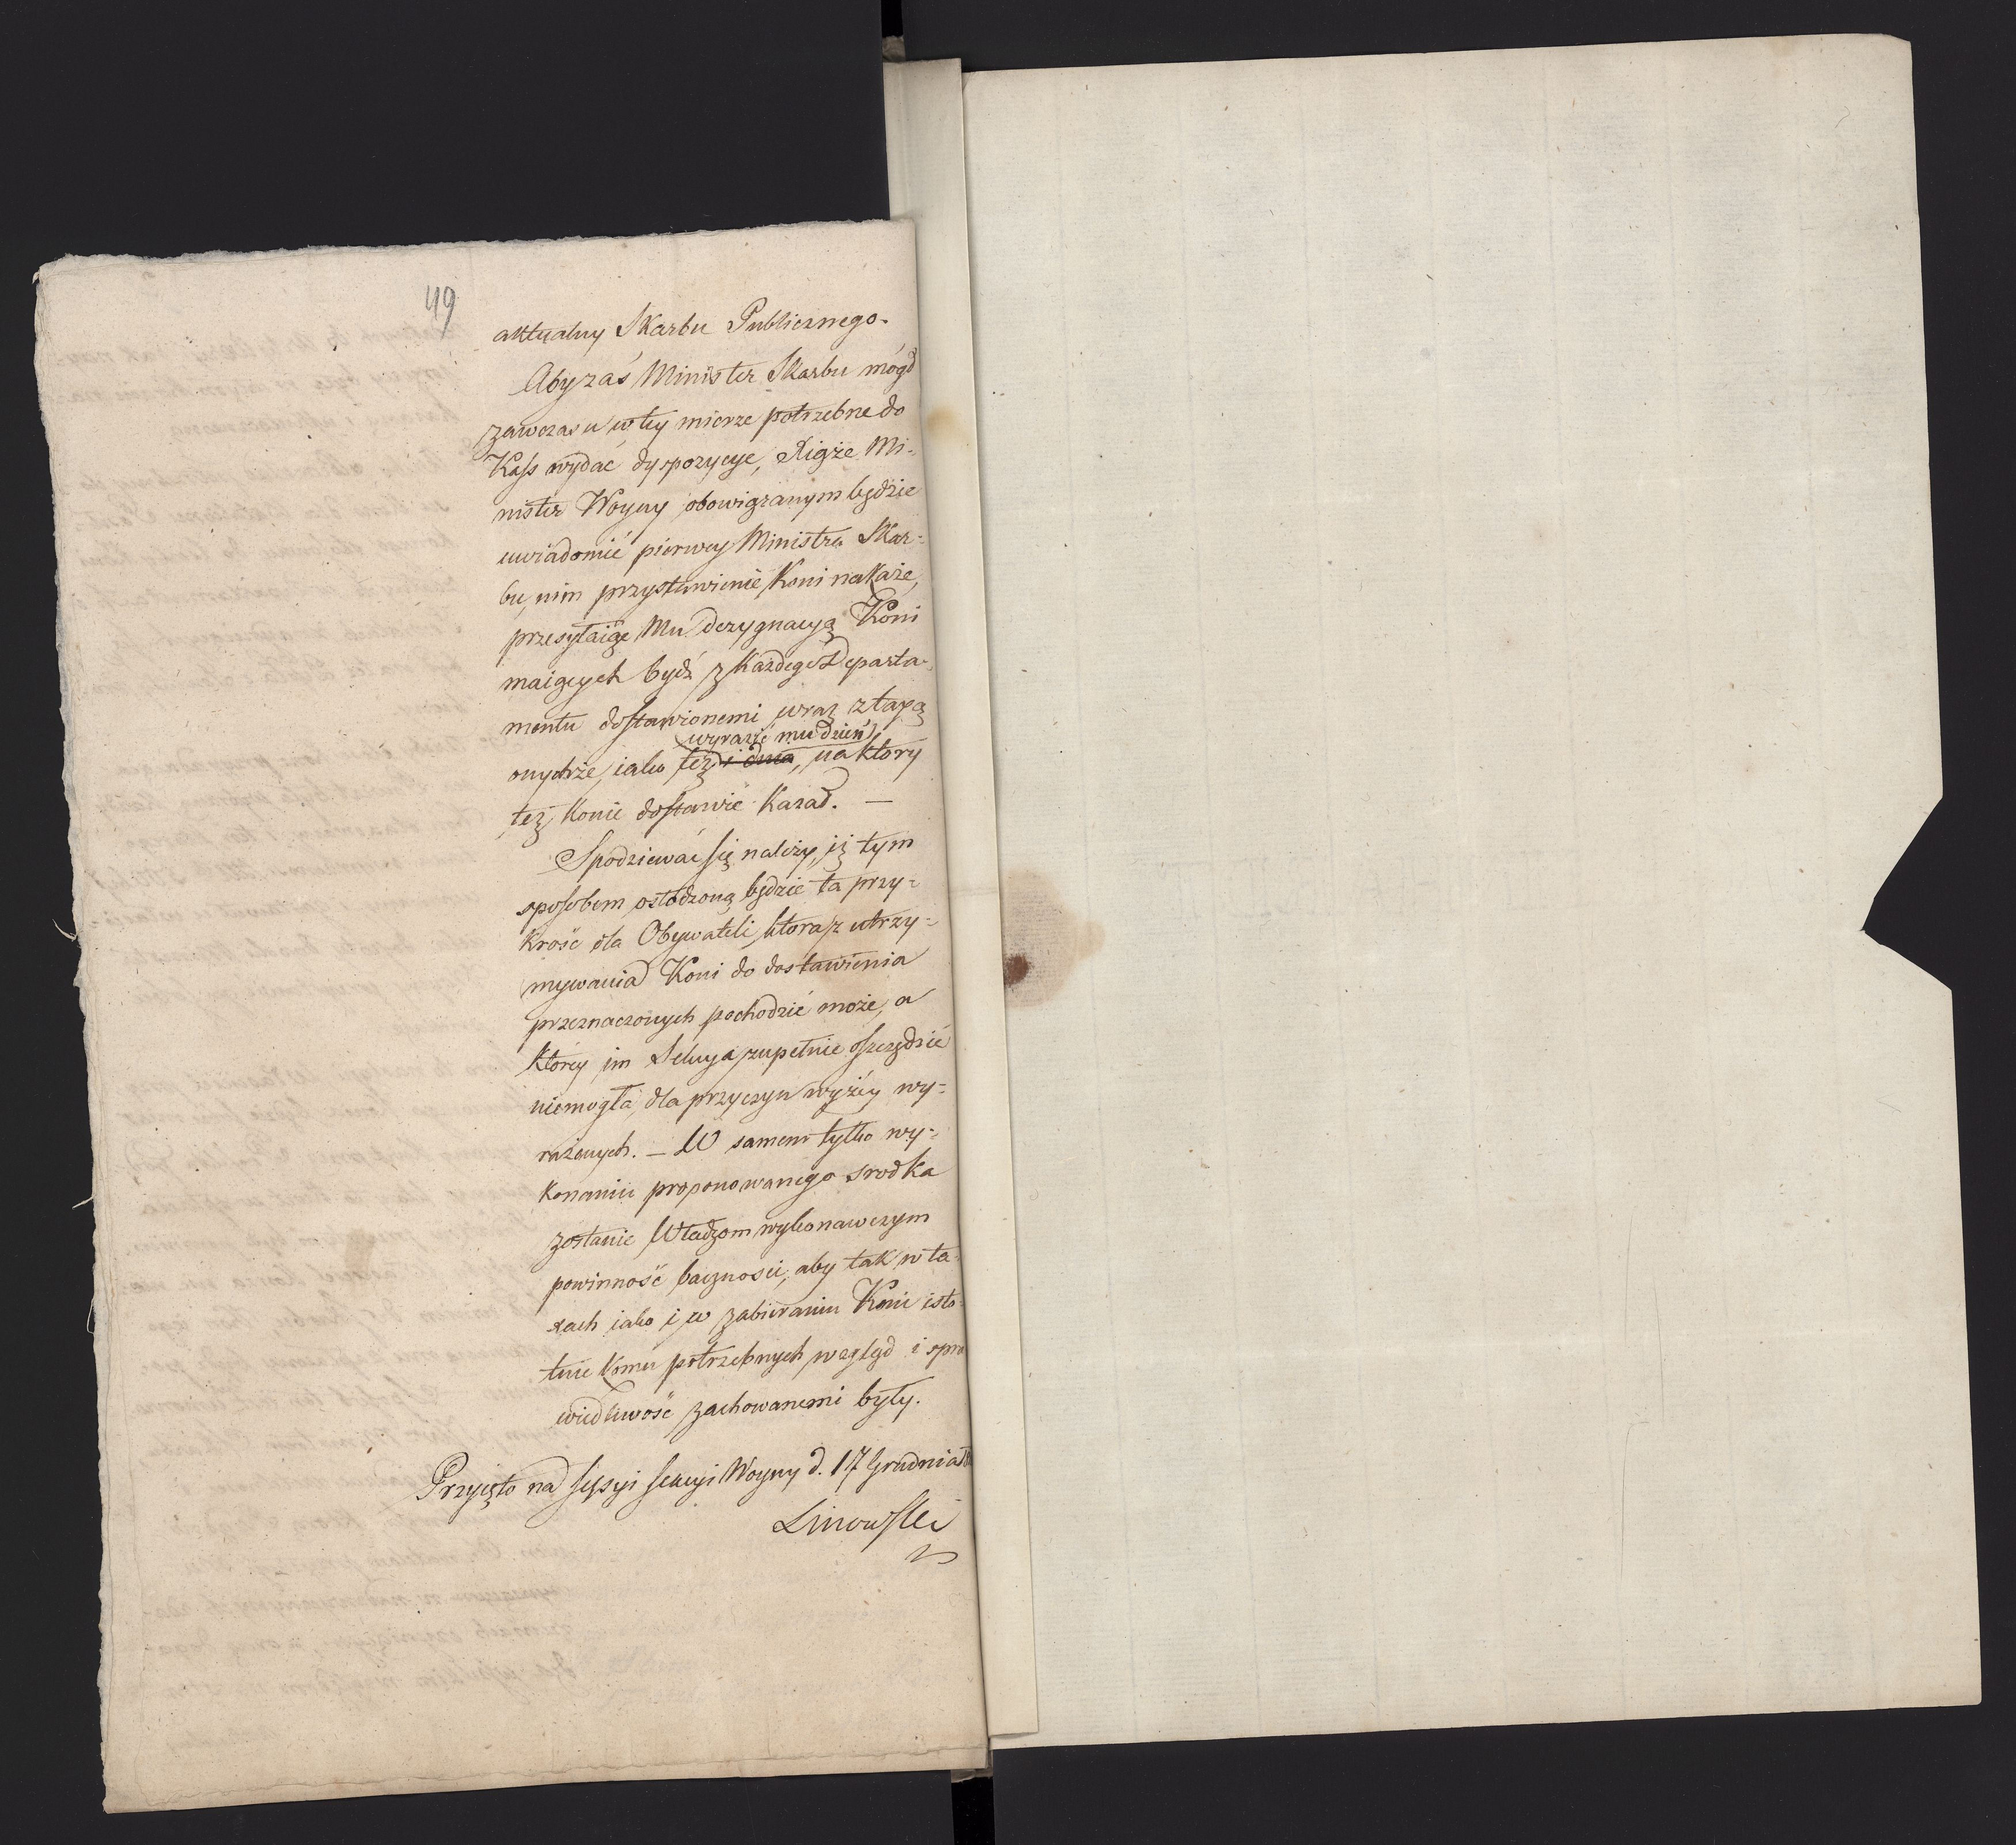 49
aktualny Skarbu Publicznego.
Aby zaś Minister Skarbu mógł
zawczasu w tey mierze potrzebne do
Kass wydać dyspozycye, Xiąże Mi-
nister Woyny obowiązanym będzie
uwiadomić pierwey Ministra Skar=
bu, nim przystawienie Koni nakaże,
przesyłaiąc Mu dezygnacyą Koni
maiących bydź z każdego Departa-
mentu dostawionemi wraz z taxą
wyrazić mu dzień
onychże, iako też i dnia, na ktory
też Konie dostawić kazał. —
Spodziewać się należy, iż tym
sposobem osłodzoną będzie ta przy=
krość dla Obywateli, ktora z utrzy=
mywania Koni do dostawienia
przeznaczonych pochodzić może, a
ktorey im Sekcya zupełnie oszczędzić
niemogła, dla przyczyn wyżey wy=
rażonych. — W samem tylko wy=
konaniu proponowanego srodka
zostanie Władzom wykonawczym
powinność baczności, aby tak w ta-
xach iako i w zabieraniu Koni isto-
tnie komu potrzebnych wzgląd i spra
wiedliwość zachowanemi były.
Przyięto na sessyi sekcyi Woyny d. 17 Grudnia
Linowski